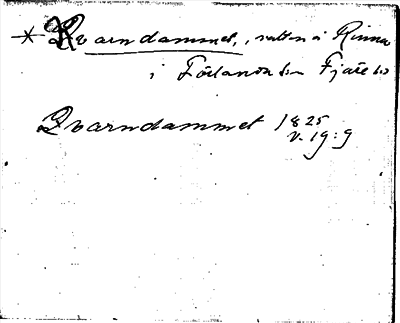 * Kvarndammet, vatten i Rinna
i Förlanda sn Fjäre hd
Qvarndammet 1825
v. 19:9